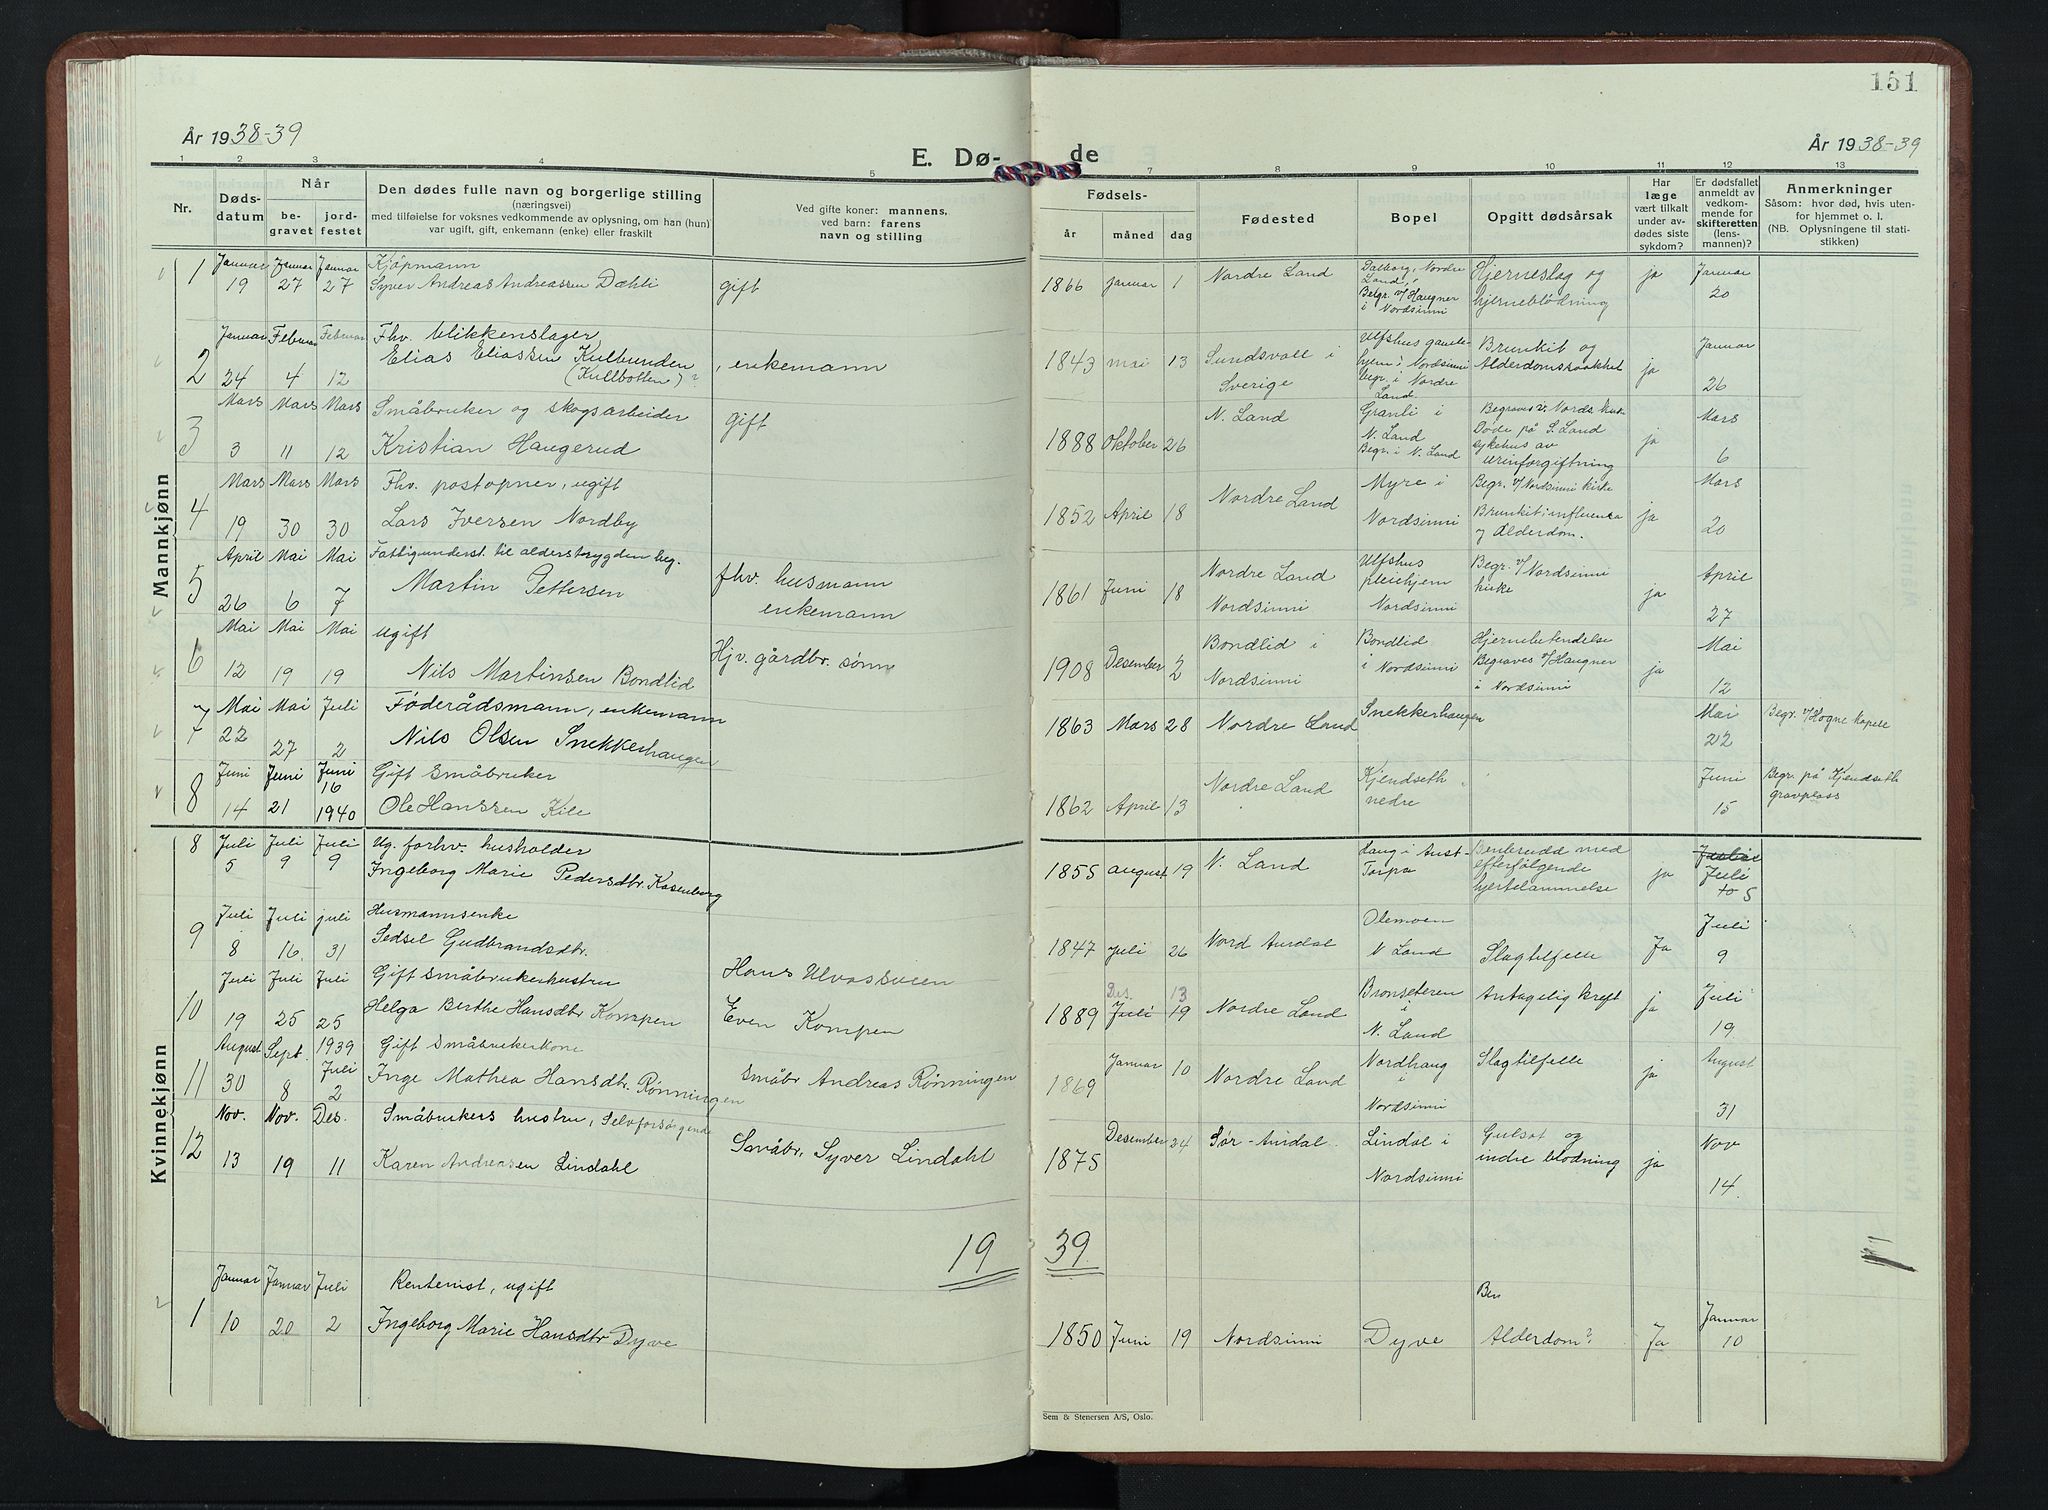 151
År 1938-39
E. Dø-
de
År 1938-39
1 2 3 4 5 7 8 9 10 11 12 13
Nr.
Døds-
datum
Når
be-
gravet
jord-
festet
Den dødes fulle navn og borgerlige stilling
(næringsvei)
med tilføielse for voksnes vedkommende av oplysning, om han (hun)
var ugift, gift, enkemann (enke) eller fraskilt
Ved gifte koner: mannens,
ved barn: farens
navn og stilling
Fødsels-
år måned dag
Fødested
Bopel
Opgitt dødsårsak
Har
læge
vært tilkalt
under av-
dødes siste
sykdom?
Er dødsfallet
anmeldt av
vedkom-
mende for
skifteretten
(lens-
mannen)?
Anmerkninger
Såsom: hvor død, hvis uten-
for hjemmet o. l.
(NB. Oplysningene til stati-
stikken)
Mannkjønn
1 Januar 19 Januar 27 Januar 27
Kjøpmann
Syver Andreas Andreassen Dæhli
gift
1866 Januar 1 Nordre Land
Dalborg, Nordre
Land,
Begr. v/ Haugner
i Nordsinni
Hjerneslag og
hjerneblødning
ja
Januar
20
2 Januar 24 Februar 4 Februar 12
Fhv. blikkenslager
Elias Eliassen Kulbunden
(Kullbotten)?
, enkemann
1843 mai 13 Sundsvall i
Sverige
Ulfshus gamle-
hjem i Nordsinni
begr. i Nordre
Land.
Brunkit og
Alderdomssvakhet
ja
Januar
26
3 Mars 3 Mars 11 Mars 12
Småbruker og skogsarbeider
Kristian Haugerud
gift
1888 Oktober 26 N. Land
Granli i
N. Land
Begr. i N. Land
Begraves v. Nords. kirke
Døde på S. Land
sykehus av
urinforgiftning
ja
Mars
6
4 Mars 19 Mars 30 Mars 30
Fhv. postopner, ugift
Lars Iversen Nordby
1852 April 18 Nordre Land
Myre i
Nordsinni
Begr. v/ Nordsinni kirke
Brunkit; influensa
og Alderdom.
ja
Mars
20
5 April 26 Mai 6 Mai 7
Fattigunderst. til alderstrygden beg.
Martin Pettersen
fhv. husmann
enkemann
1861 Juni 18 Nordre Land
Nordsinni
Ulfshus
pleiehjem
Nordsinni
Begr. v/ Nordsinni
kirke
ja
April
27
6 Mai 12 Mai 19 Mai 19
ugift
Nils Martinsen Bondlid
Hjv. gårdbr. sønn
1908 Desember 2 Bondlid i
Nordsinni
Bondlid
i Nordsinni
Hjernebetendelse
Begraves v/ Haugner
i Nordsinni
ja
Mai
12
7 Mai 22 Mai 27 Juli 2
Føderådsmann, enkemann
Nils Olsen Snekkerhaugen
1863 Mars 28 Nordre Land
Snekkerhaugen
Mai
22
Begr. v/ Hogne kapele
8 Juni 14 Juni 21 Juni 16 1940
Gift småbruker
Ole Hanssen Kile
1862 April 13 Nordre Land
Kjendseth
nedre
Juni
15
Begr. på Kjendseth
gravplass
Kvinnekjønn
8 Juli 5 Juli 9 Juli 9
Ug. forhv. husholder
Ingeborg Marie Pedersdtr. Kasenborg
1855 august 19 N. Land
Haug i Aust-
Torpa
Benbrudd med
efterfølgende
hjertelammelse
ja
Juli
to 5
9 Juli 8 Juli 16 juli 31
Husmannsenke
Sedsel Gudbrandsdtr.
1847 Juli 26 Nord Aurdal
Olemoen
N Land
Slagtilfelle
Ja
Juli
9
10 Juli 19 Juli 25 Juli 25
Gift småbrukerhustru
Helga Birthe Hansdtr Kompen
Hans Ulvassveen
Even Kompen
Des. 13
1889 Juli 19 Nordre Land
Bronseteren
i
N. Land
Antagelig kreft
ja
Juli
19
11 August 30 Sept. 8 1939 Juli 2
Gift Småbrukerkone
Inge Mathea Hansdtr. Rønningen
småbr Andreas Rønningen
1869 Januar 10 Nordre Land
Nordhaug
i
Nordsinni
Slagtilfelle
ja
August
31
12 Nov. 13 Nov. 19 Des. 11
Småbrukers hustru, Selvforsørgende
Karen Andreasen Lindahl
Småbr. Syver Lindahl
1875 Desember 24 Sør-Aurdal
Lindal i
Nordsinni
Gulsot og
indre blødning
ja
Nov
14.
19 39
1 Januar 10 Januar 20 Juli 2
Rentenist, ugift
Ingeborg Marie Hansdtr Dyve
1850 Juni 19 Nordsinni
Dyve
Ben
Alderdom?
Ja
Januar
10
Sem & Stenersen A/S, Oslo.